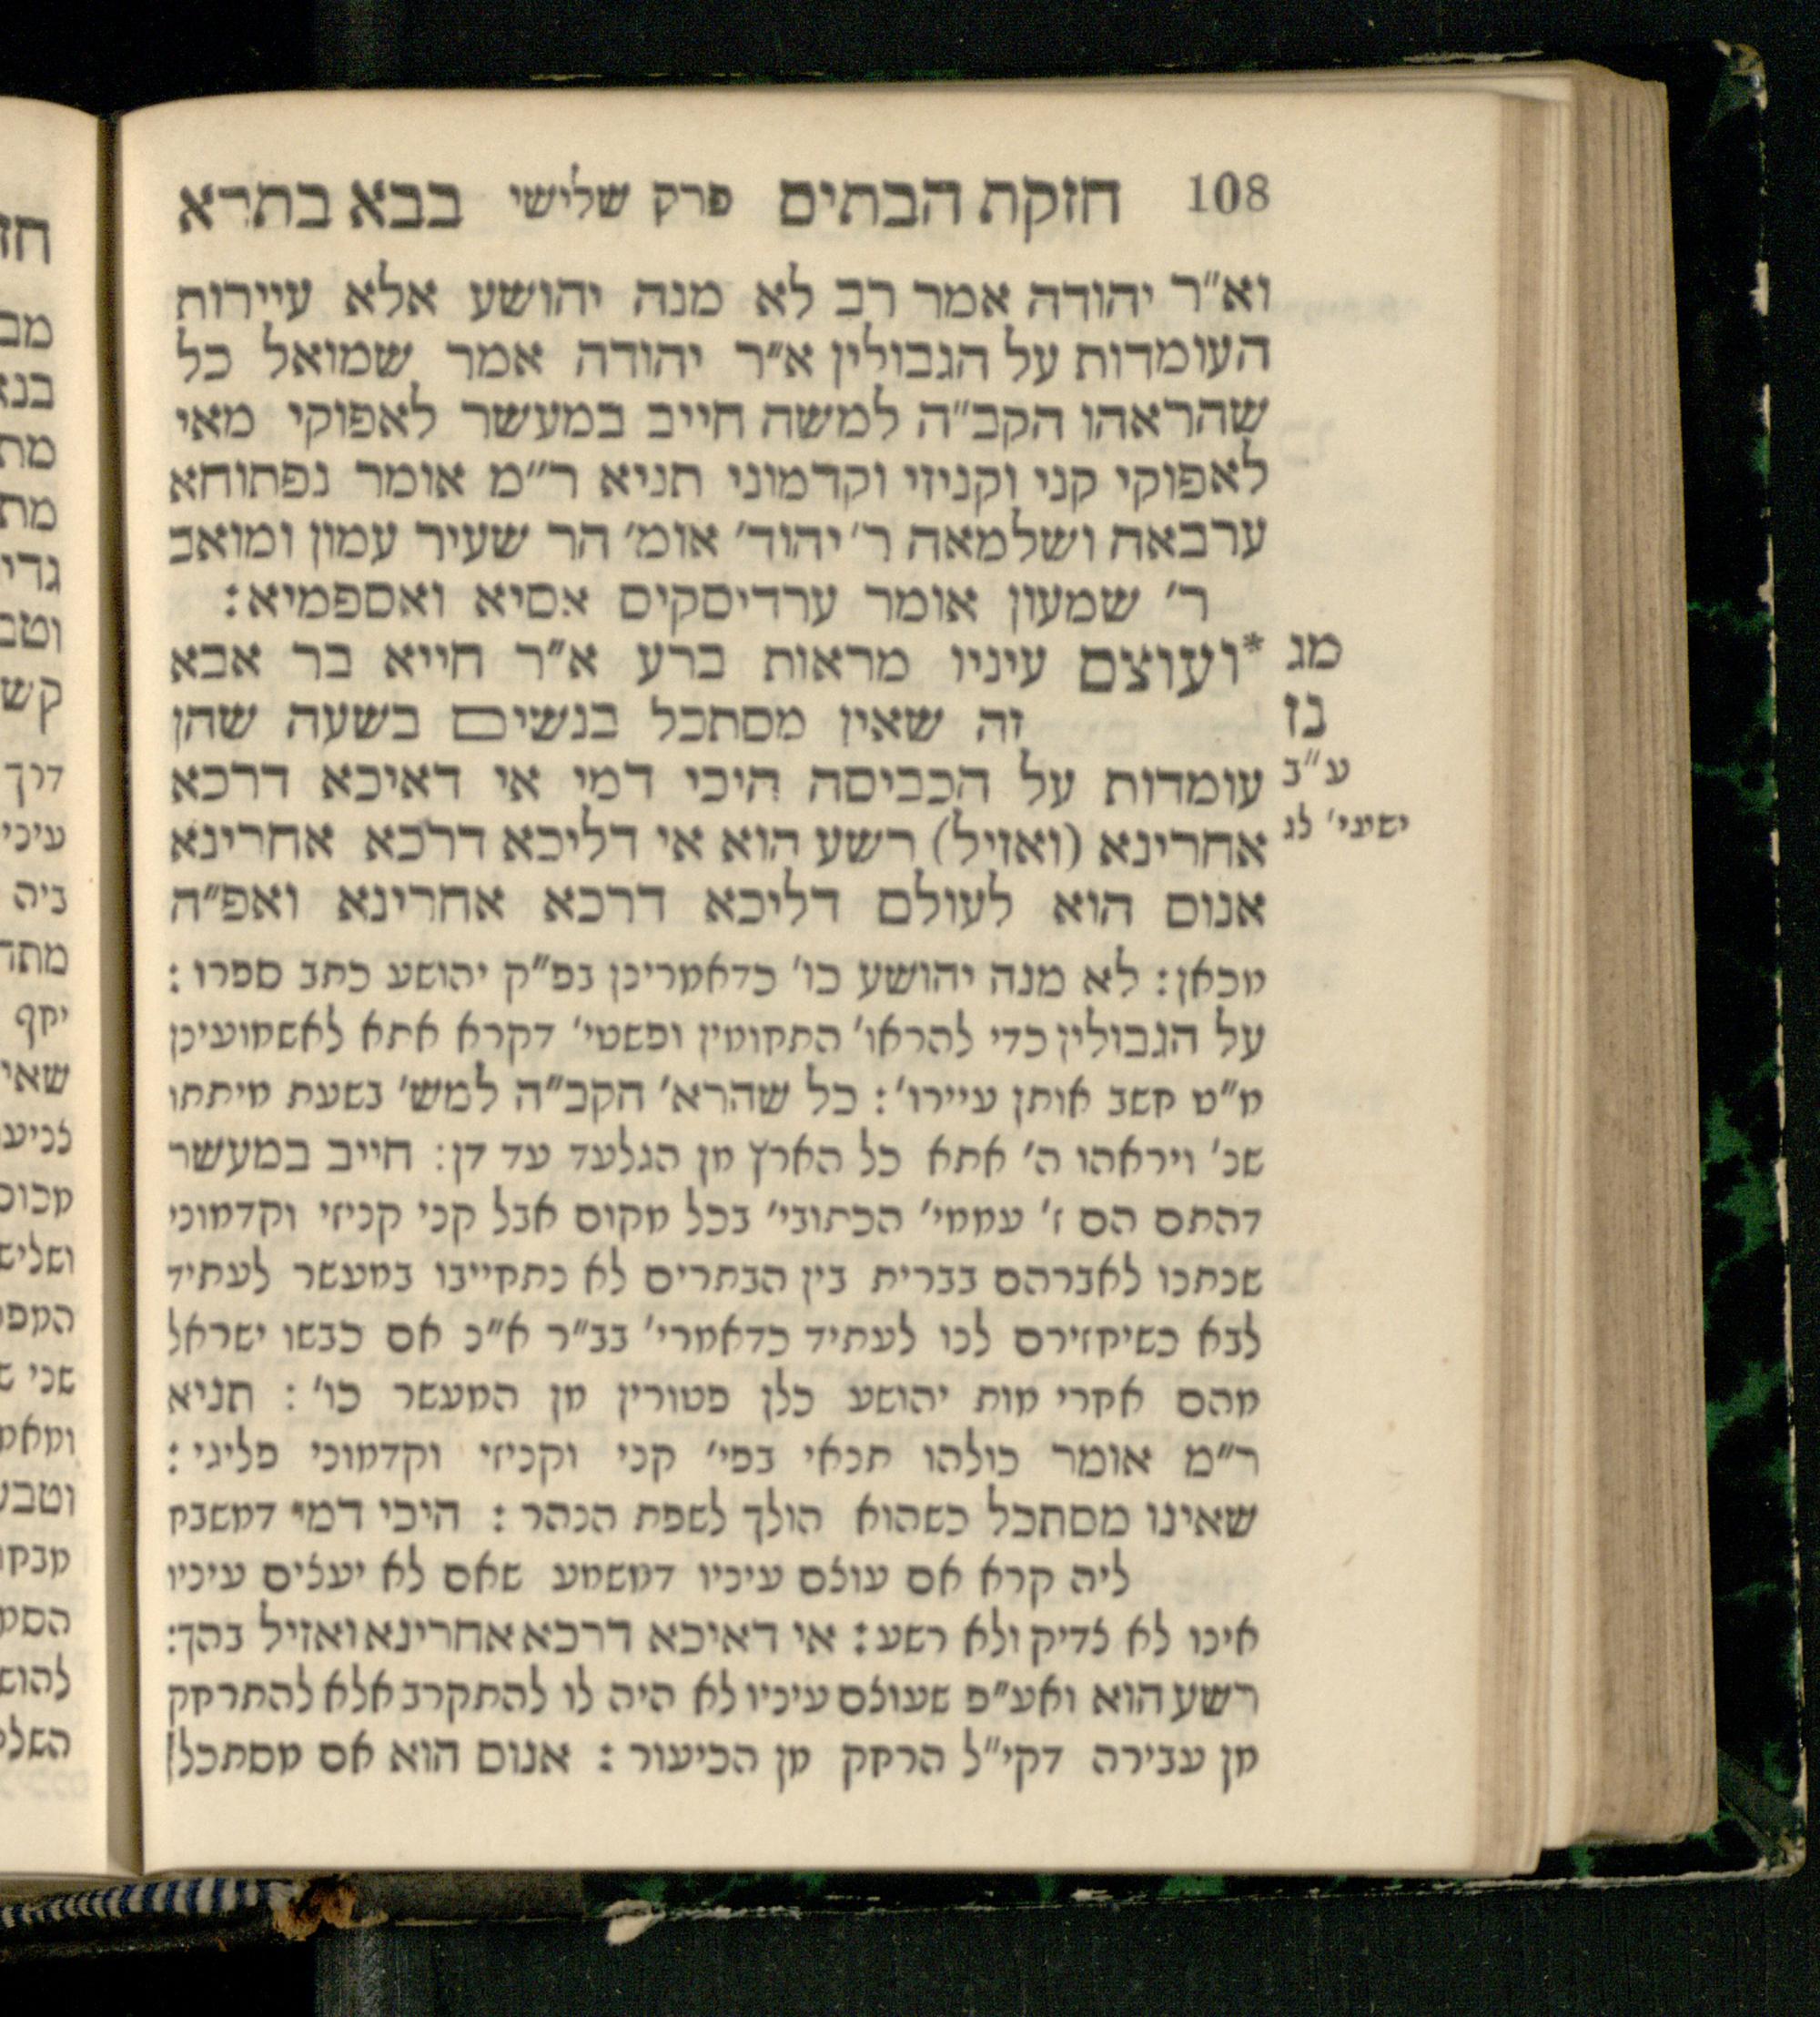 108 חזקת הבתים פרק שלישי בבא בתרא
וא״ר יהודה אמר רב לא מנה יהושע אלא עיירות
העומדות על הגבולין א״ר יהודה אמר שמואל כל
שהראהו הקב״ה למשה חייב במעשר לאפוקי מאי
לאפוקי קני וקניזי וקדמוני תניא ר״מ אומר נפתוחא
ערבאח ושלמאה ר׳ יהוד׳ אומ׳ הר שעיר עמון ומואב
ר׳ שמעון אומר ערדיסקים אסיא ואספמיא:
מג *ועוצם עיניו מראות ברע א״ר חייא בר אבא
נז זה שאין מסתכל בנשים בשעה שהן
ע״ב עומדות על הכביסה היכי דמי אי דאיכא דרכא
ישעי׳ לג אחרינא (ואזיל) רשע הוא אי דליכא דרכא אחרינא
אנוס הוא לעולם דליכא דרכא אחרינא ואפ״ה
מכאן: לא מנה יהושע כו׳ כדאמרינן בפ״ק יהושע כתב ספרו:
על הגבולין כדי להראו׳ התחומין ופשטי׳ דקרא אתא לאשמועינן
מ״ט חשב אותן עיירו׳: כל שהרא׳ הקב״ה למש׳ בשעת מיתתו
שנ׳ ויראהו ה׳ אתא כל הארץ מן הגלעד עד דן: חייב במעשר
דהתם הם ז׳ עממי׳ הכתובי׳ בכל מקום אבל קני קניזי וקדמוני
שנתנו לאברהם בברית בין הבתרים לא נתחייבו במעשר לעתיד
לבא כשיחזירם לנו לעתיד כדאמרי׳ בב״ר א״נ אם כבשו ישראל
מהם אחרי מות יהושע כלן פטורין מן המעשר כו׳: תניא
ר״מ אומר כולהו תנאי בפי׳ קני וקניזי וקדמוני פליגי:
שאינו מסתכל כשהוא הולך לשפת הנהר: היכי דמי דמשבח
ליה קרא אם עוצם עיניו דמשמע שאם לא יעצים עיניו
אינו לא צדיק ולא רשע: אי דאיכא דרכא אחרינא ואזיל בהך:
רשע הוא ואע״פ שעוצם עיניו לא היה לו להתקרב אלא להתרחק
מן עבירה דקי״ל הרחק מן הכיעור: אנוס הוא אם מסתכל